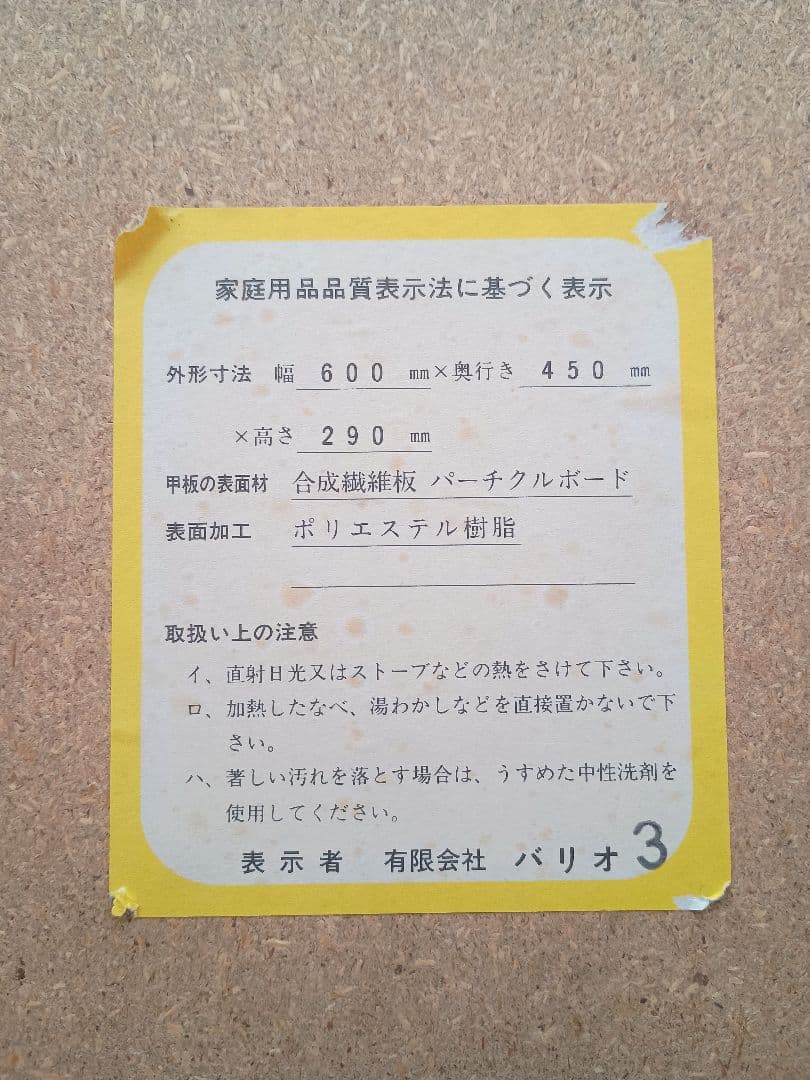 家庭用品品質表示法に基づく表示
外形寸法 幅 600 mm×奥行き 450 mm
×高さ 290 mm
甲板の表面材 合成繊維板 パーチクルボード
表面加工 ポリエステル樹脂
取扱い上の注意
イ、直射日光又はストーブなどの熱をさけて下さい。
ロ、加熱したなべ、湯わかしなどを直接置かないで下
さい。
ハ、著しい汚れを落とす場合は、うすめた中性洗剤を
使用してください。
表示者 有限会社 バリオ 3